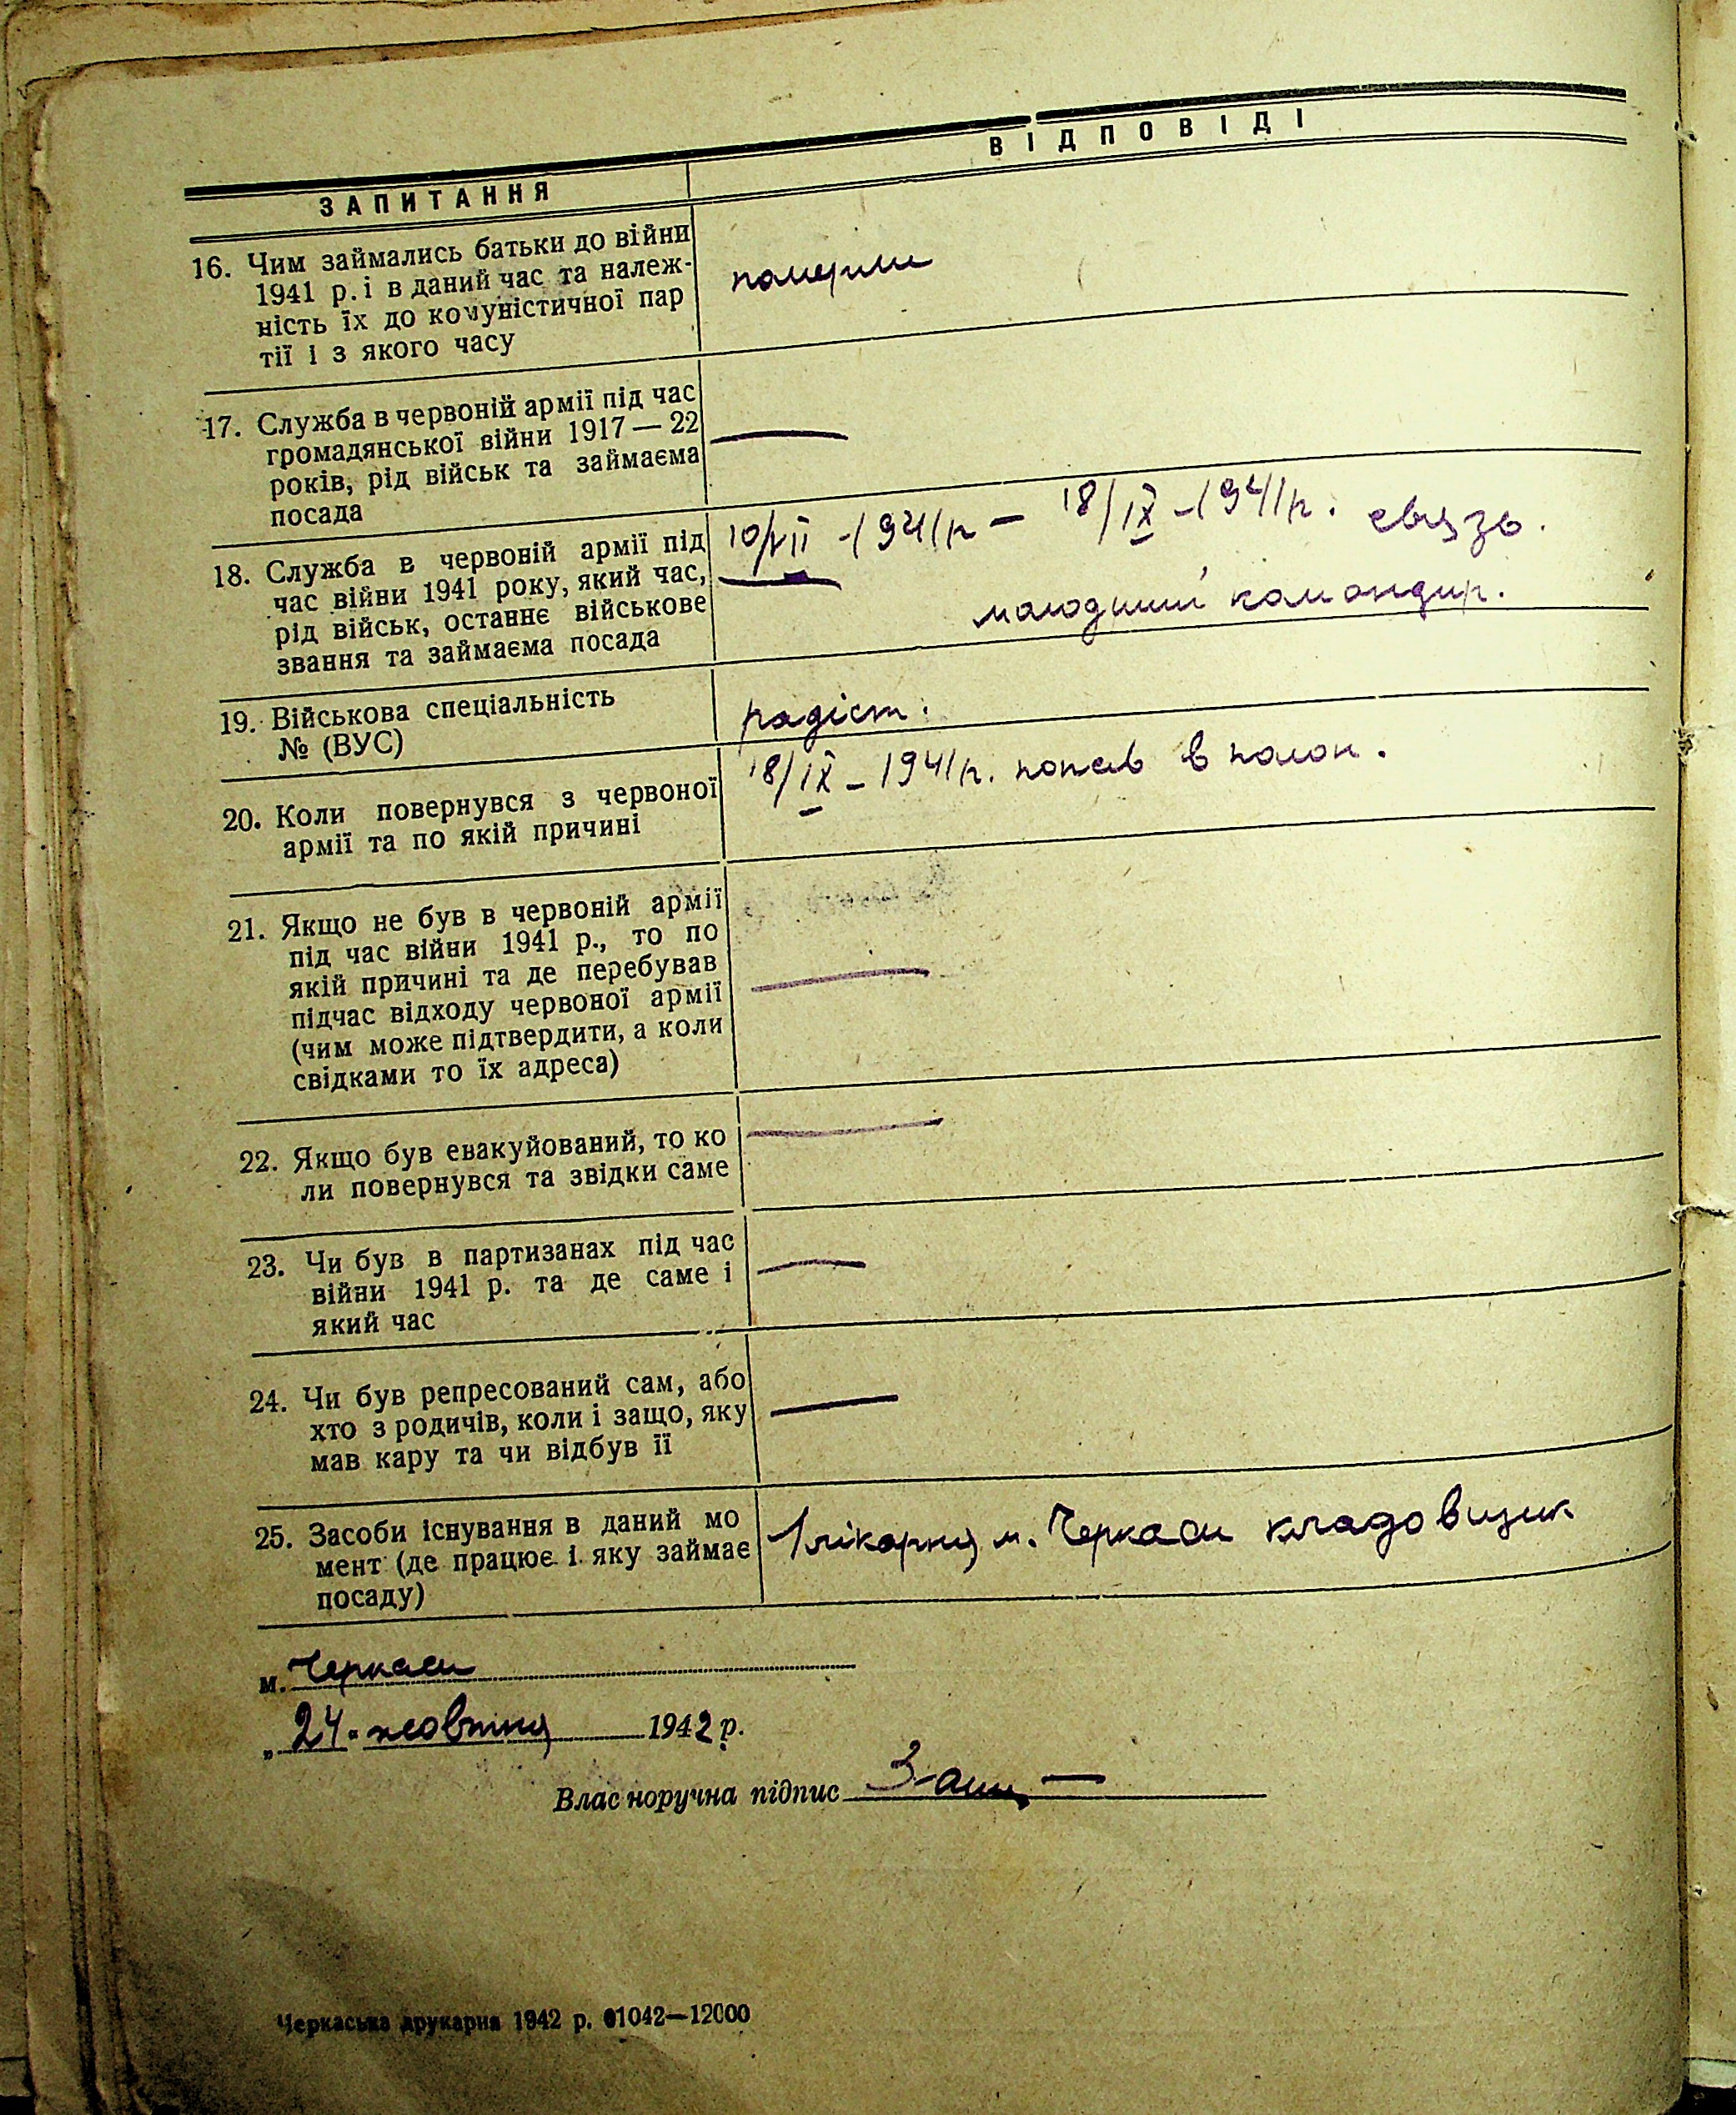 ВІДПОВІДІ
ЗАПИТАННЯ
16. Чим займались батьки до війни
1941 р. і в даний час та належ-
ність їх до комуністичної пар
тії і з якого часу
померли
17. Служба в червоній армії під час
громадянської війни 1917 — 22
років, рід військ та займаєма
посада
—
18. Служба в червоній армії під
час війни 1941 року, який час,
рід військ, останнє військове
звання та займаєма посада
10/VII - 1941 р — 18/IX - 1941 р. связь.
молодший командир.
19. Військова спеціальність
№ (ВУС)
радіст.
20. Коли повернувся з червоної
армії та по якій причині
18/IX - 1941 р. попав в полон.
21. Якщо не був в червоній армії
під час війни 1941 р., то по
якій причині та де перебував
підчас відходу червоної армії
(чим може підтвердити, а коли
свідками то їх адреса)
—
22. Якщо був евакуйований, то ко
ли повернувся та звідки саме
—
23. Чи був в партизанах під час
війни 1941 р. та де саме і
який час
—
24. Чи був репресований сам, або
хто з родичів, коли і защо, яку
мав кару та чи відбув її
—
25. Засоби існування в даний мо
мент (де працює і яку займає
посаду)
1 лікарня м. Черкаси кладовщик
м. Черкаси
„ 24. жовтня 1942 р.
Власноручна підпис
Черкаська друкарня 1942 р. 01042—12000